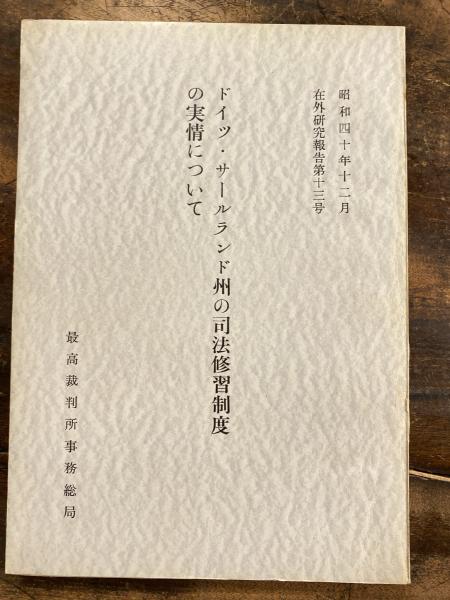 昭和四十年十二月
在外研究報告第十三号
ドイツ・サールランド州の司法修習制度
の実情について
最高裁判所事務総局